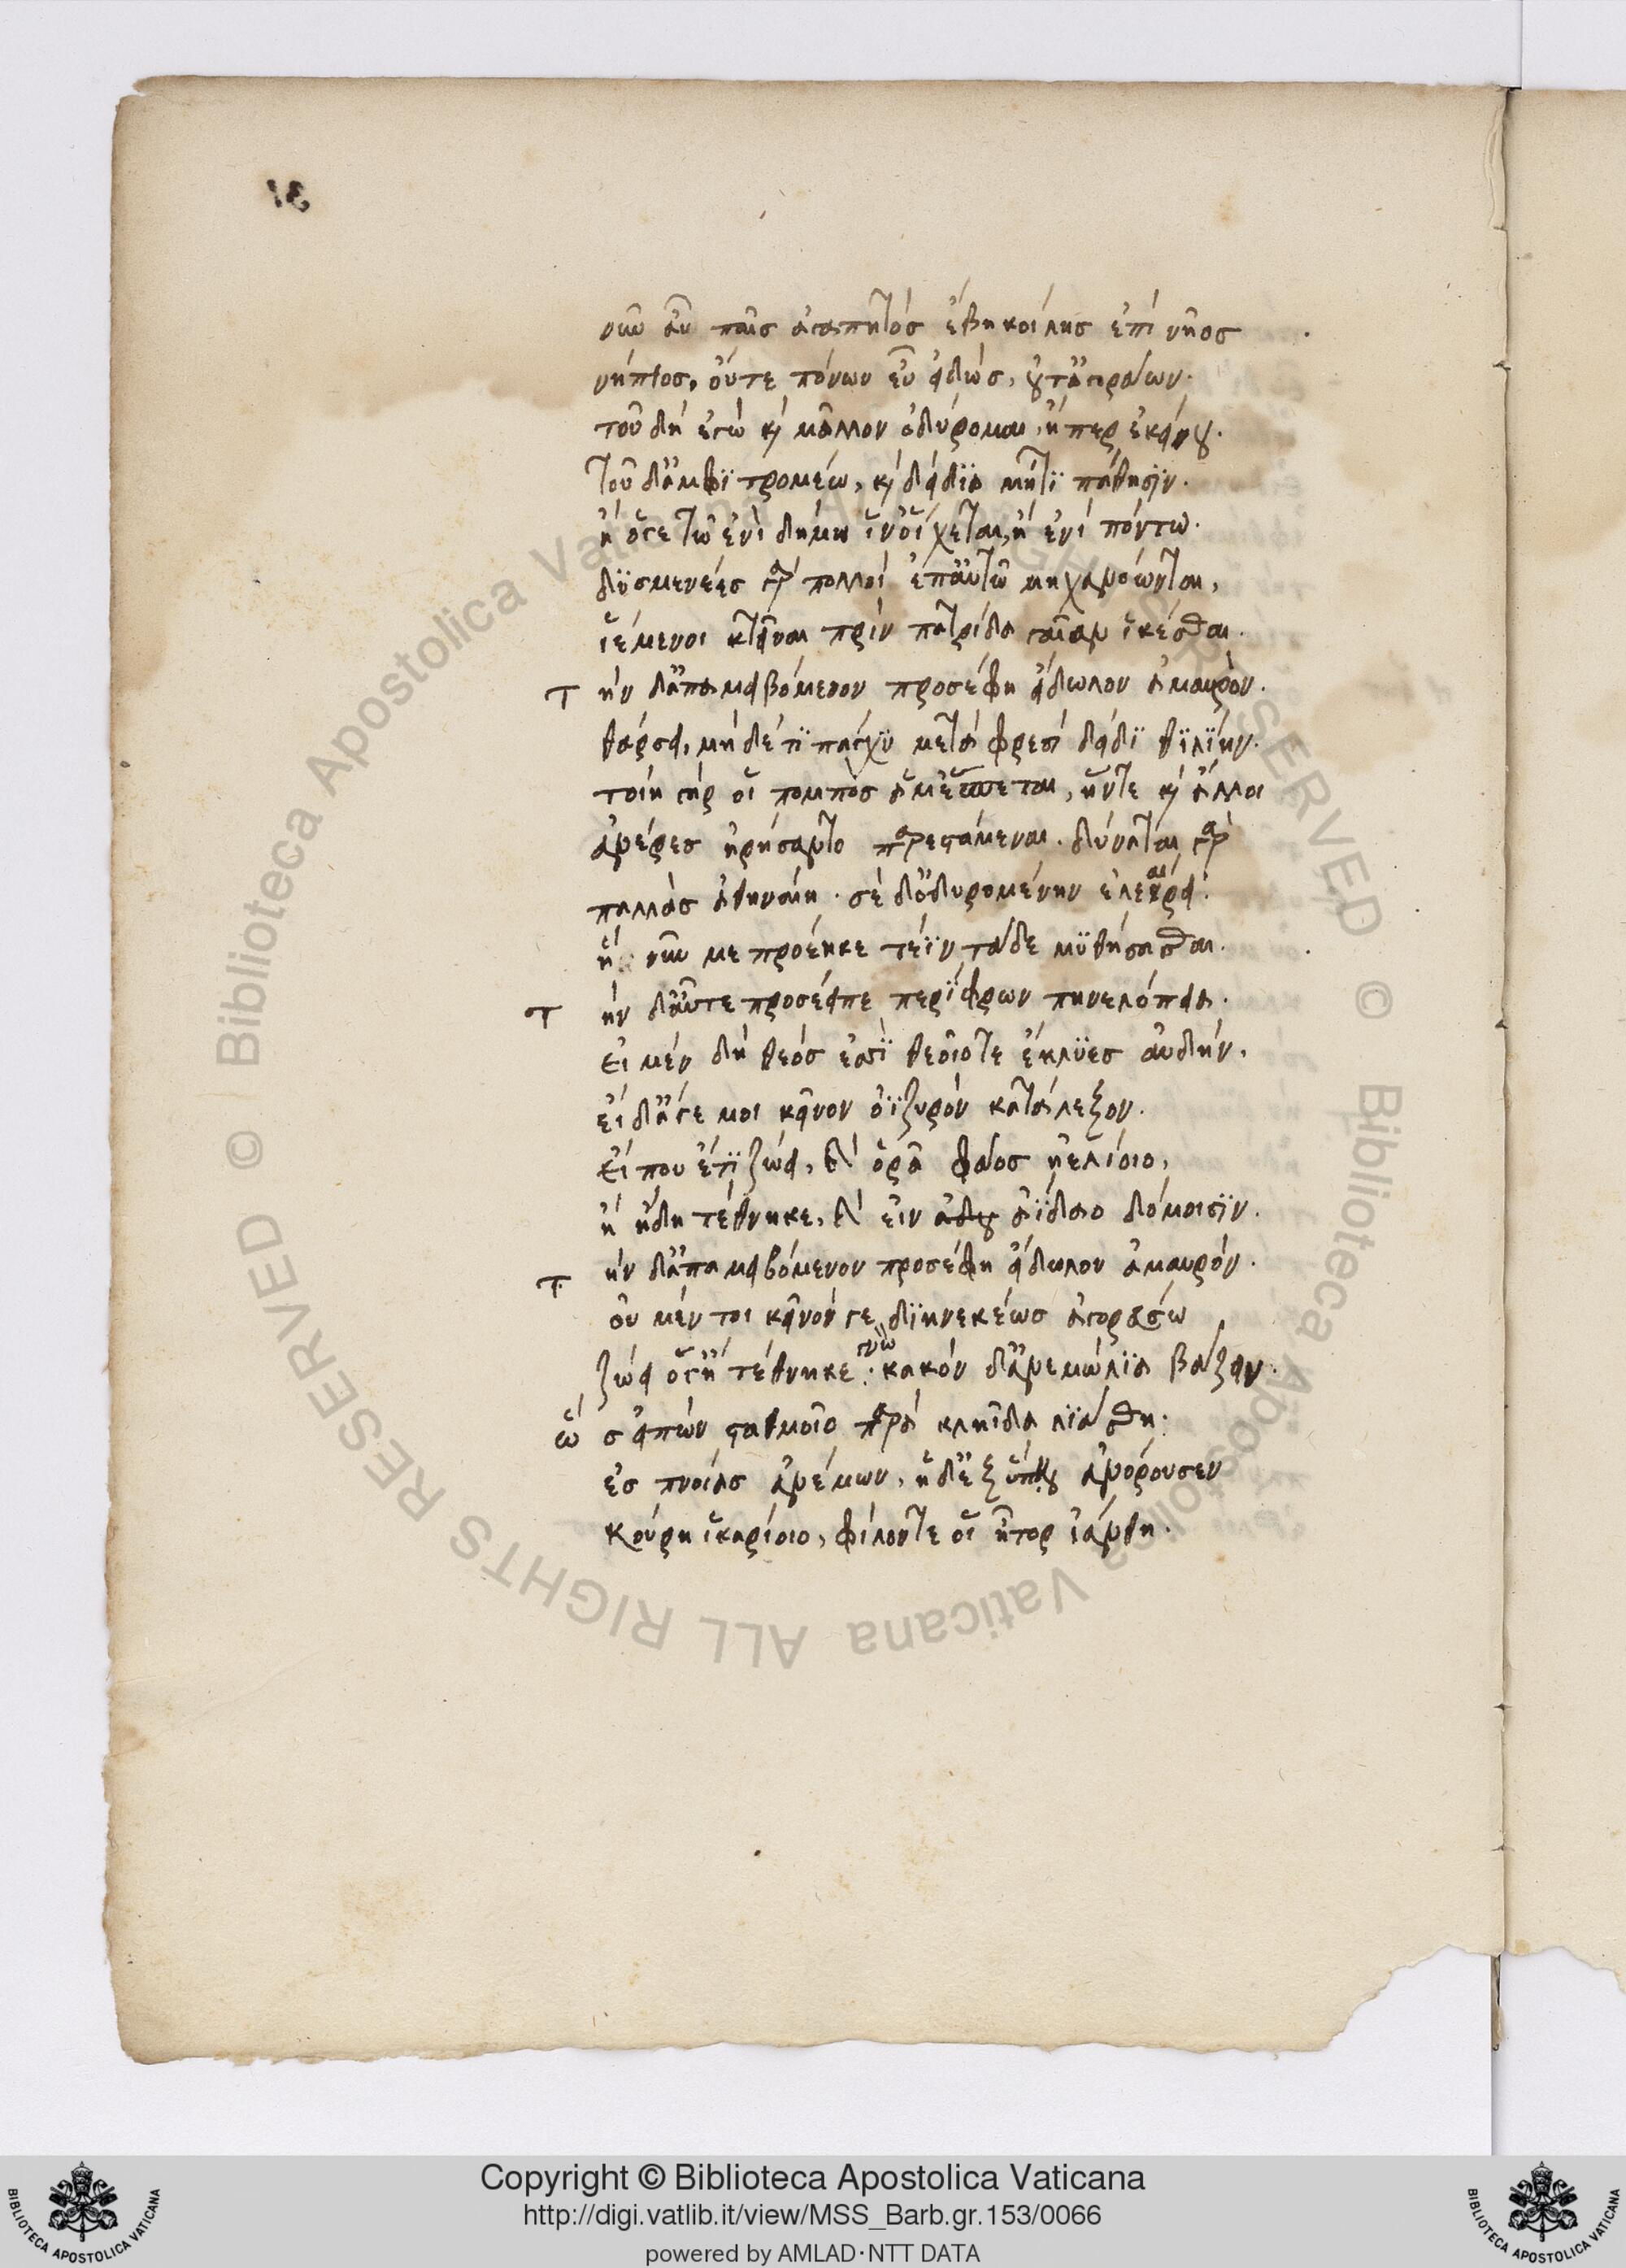 νῦν αὖ παῖσ ἀγαπητόσ ἔβη κοίλησ ἐπί νηὸσ
νήπϊοσ, οὔτε πόνων εὖ εἰδώσ, οὔτἀγοράων.
τοῦ δή ἐγώ κỳ μᾶλλον ὀδύρομαι, ἤπερ ἐκείνου.
τοῦ δἀμφϊτρομέω, κỳ δείδϊα μήτϊ πάθησϊν.
ἤ ὅγε τῶ ἐνὶ δήμω ἵνοἴχεται, ἤ ἐνί πόντω.
δϋσμενέεσ γάρ πολλοί ἐπαὐτῶ μηχανόωνται,
ἱέμενοι κτεῖναι πρίν πατρίδα γαῖαν ἱκέσθαι.
Τ ήν δἀπαμειβόμενον προσέφη εἴδωλον ἀμαυρὸν.
θάρσει, μή δέ τϊ πάγχϋ μετά φρεσί δείδϊ θϊλϊην.
τοίη γάρ οἱ πομπὸσ ἅμἕπεται, ἥντε κỳ ἄλλοι
ἀνέρεσ ἠρήσαντο παρεστάμεναι. δύναται γάρ
παλλάσ ἀθηναίη. σὲ δὀδυρομένην ἐλεαίρει.
ἥ νῦν με προέηκε τεΐν τάδε μϋθήσασθαι.
Τ ήν δαὖτε προσέειπε περϊφρων πηνελόπεια.
εἰ μέν δή θεόσ ἐσσϊ θεοῖοτε ἔκλϋεσ αὐδήν,
εἰ δἄγε μοι κεῖνον ὀϊζυρόν κατάλεξον.
εἴ που ἔτϊ ζώει, κỳ ὁρᾶ φάοσ ἠελίοιο,
ἤ ἤδη τέθνηκε, κỳ εἰν ἀίδου ἀΐδαο δόμοισϊν.
Τ ήν δἀπαμειβόμενον προσέφη εἴδωλον ἀμαυρόν.
οὐ μέν τοι κεῖνόν γε δϊηνεκέωσ ἀγορεύσω
ζώει ὅγἤ τέθνηκε. κακόν δἀνεμώλϊα βάζειν.
ὥ σ εἰπών σταθμοῖο παρά κληῖδα λϊάσθη.
ἐσ πνοιάσ ἀνέμων, ἡ δἐξ ὕπνου ἀνόρουσεν
κούρη ἰκαρίοιο, φίλοντε οἱ ἦτορ ἰάνθη.
Copyright © Biblioteca Apostolica Vaticana
http://digi.vatlib.it/view/MSS_Barb.gr.153/0066
powered by AMLAD·NTT DATA